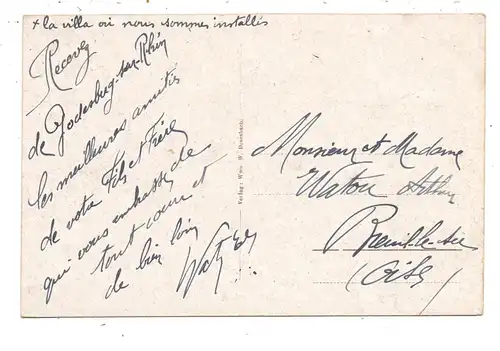 + la villa où nous sommes installés
Recevez
de Godesberg-sur-Rhin
les meilleures amitiés
de votre Fils et Frère
qui vous embrasse de
tout cœur et
de bien loin
Verlag: Wwe. W.
Monsieur et Madame
Watou Arthur
Breuil-le-Sec
(Oise)